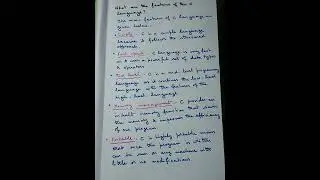 What are the features of the C
language?
The main features of C language are
given below:
• Simple :- C is a simple language
because it follows the structured
approach.
• Fast speed :- C language is very fast
as it uses a powerful set of data types
& operators
• Mid level :- C is a mid level programming
language as it combines the low level
language with the features of the
high-level language.
• Memory management :- C provides an
inbuilt memory function that saves
the memory & improves the efficiency
of our program.
• Portable :- C is highly portable means
that once the program is written
can be run on any machine with
little or no modifications.